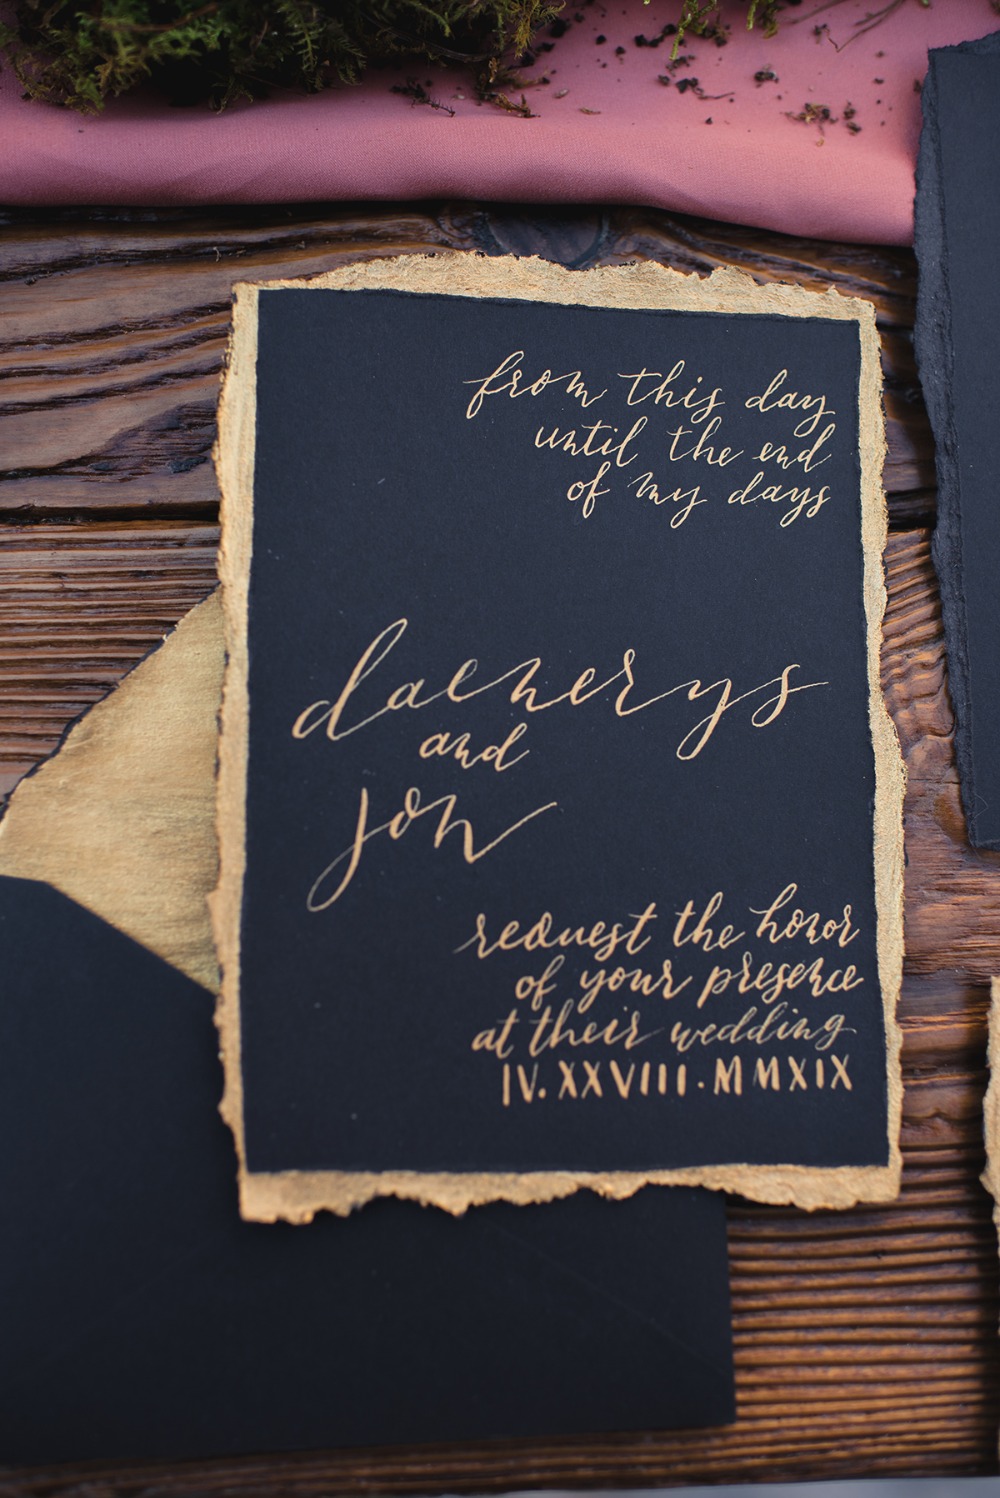 from this day
until the end
of my days
daenerys
and
jon
request the honor
of your presence
at their wedding
IV. XXVIII. MMXIX